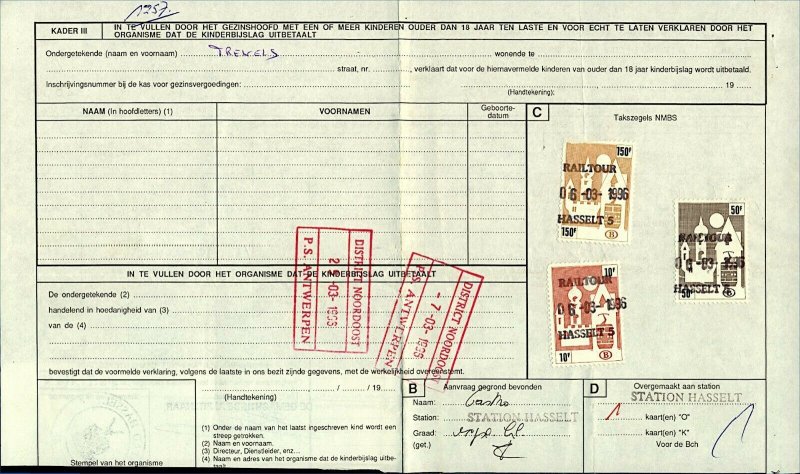 1257.
KADER III
IN TE VULLEN DOOR HET GEZINSHOOFD MET EEN OF MEER KINDEREN OUDER DAN 18 JAAR TEN LASTE EN VOOR ECHT TE LATEN VERKLAREN DOOR HET
ORGANISME DAT DE KINDERBIJSLAG UITBETAALT
Ondergetekende (naam en voornaam) wonende te
straat, nr. , verklaart dat voor de hiernavermelde kinderen van ouder dan 18 jaar kinderbijslag wordt uitbetaald.
Inschrijvingsnummer bij de kas voor gezinsvergoedingen: 19
(Handtekening);
NAAM (In hoofdletters) (1)
VOORNAMEN
Geboorte-
datum
C
Takszegels NMBS
150F
RAILTOUR
06-03-1996
HASSELT 5
150F
B
50F
RAILTOUR
06-03-1996
HASSELT 5
50F
B
10F
RAILTOUR
06-03-1996
HASSELT 5
10F
B
DISTRICT NOORDOOST
P.S. ANTWERPEN
DISTRICT NOORDOOST
-7-03-1996
P.S. ANTWERPEN
IN TE VULLEN DOOR HET ORGANISME DAT DE KINDERBIJSLAG UITBETAALT
De ondergetekende (2)
handelend in hoedanigheid van (3)
van de (4)
bevestigt dat de voormelde verklaring, volgens de laatste in ons bezit zijnde gegevens, met de werkelijkheid overeenstemt.
/ /19
(Handtekening)
(1) Onder de naam van het laatst ingeschreven kind wordt een
streep getrokken.
(2) Naam en voornaam.
(3) Directeur, Dienstleider, enz...
(4) Naam en adres van het organisme dat de kinderbijslag uitbe-
taalt.
Stempel van het organisme
B
Aanvraag gegrond bevonden
Naam:
Station: STATION HASSELT
Graad:
(get.)
D
Overgemaakt aan station
STATION HASSELT
1 kaart(en) "O"
kaart(en) "K"
Voor de Bch